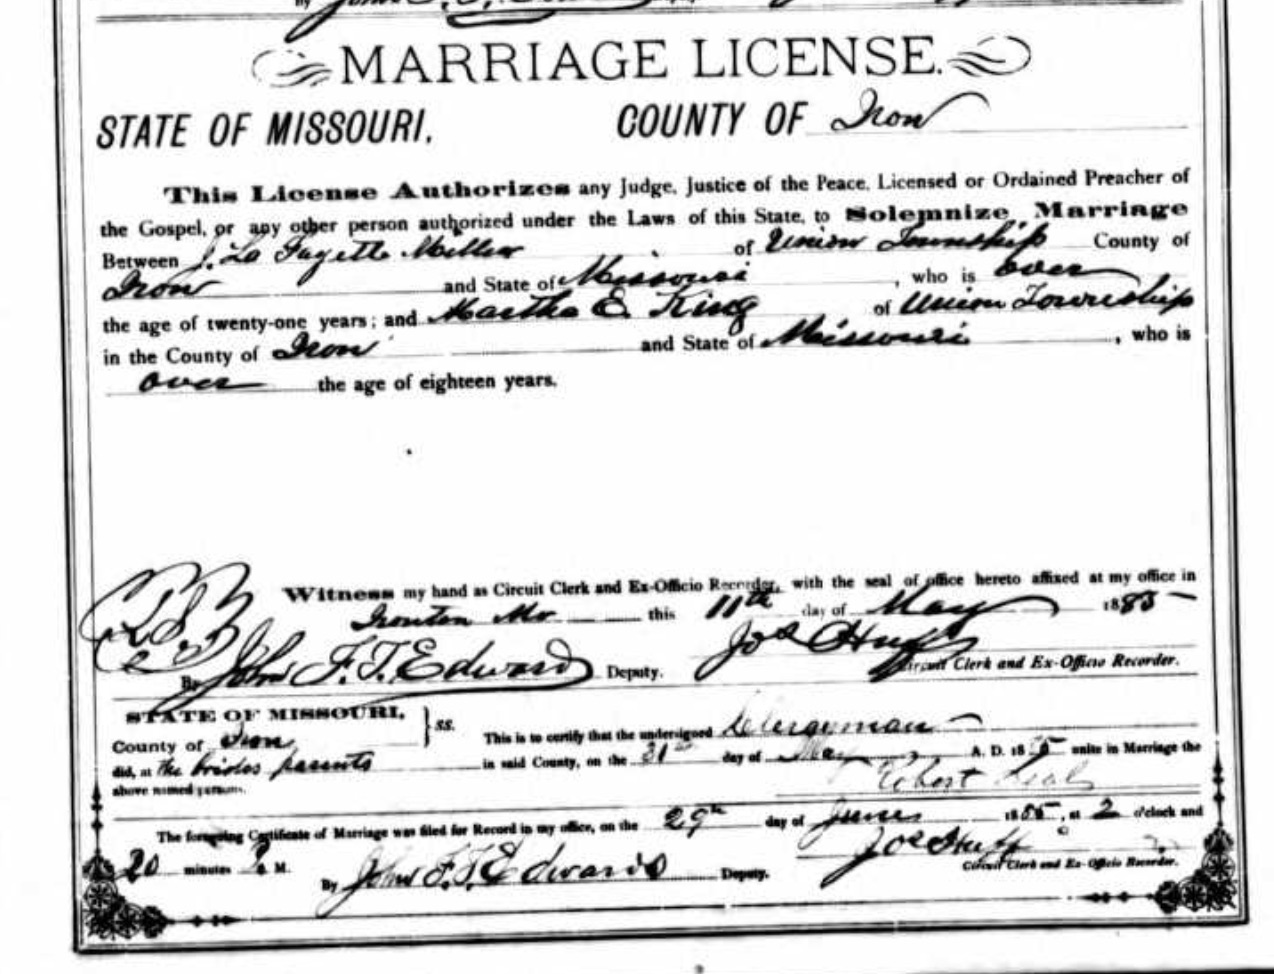 MARRIAGE LICENSE.
STATE OF MISSOURI, COUNTY OF Iron
This License Authorizes any Judge, Justice of the Peace, Licensed or Ordained Preacher of
the Gospel, or any other person authorized under the Laws of this State, to Solemnize Marriage
Between J. La Fayette Miller of Union Township County of
Iron and State of Missouri, who is over
the age of twenty-one years; and Martha E. King of Union Township
in the County of Iron and State of Missouri, who is
over the age of eighteen years.
Witness my hand as Circuit Clerk and Ex-Officio Recorder, with the seal of office hereto affixed at my office in
Ironton Mo this 11th day of May 1885
By John F. T. Edwards Deputy. Jos Huff Circuit Clerk and Ex-Officio Recorder.
STATE OF MISSOURI, ss.
County of Iron This is to certify that the undersigned Clergyman
did, at the brides parents in said County, on the 31st day of May A. D. 1885 unite in Marriage the
above named persons. Robert
The foregoing Certificate of Marriage was filed for Record in my office, on the 29th day of June 1885, at 2 o'clock and
20 minutes P. M. Jos Huff
By John F. T. Edwards Deputy. Circuit Clerk and Ex-Officio Recorder.